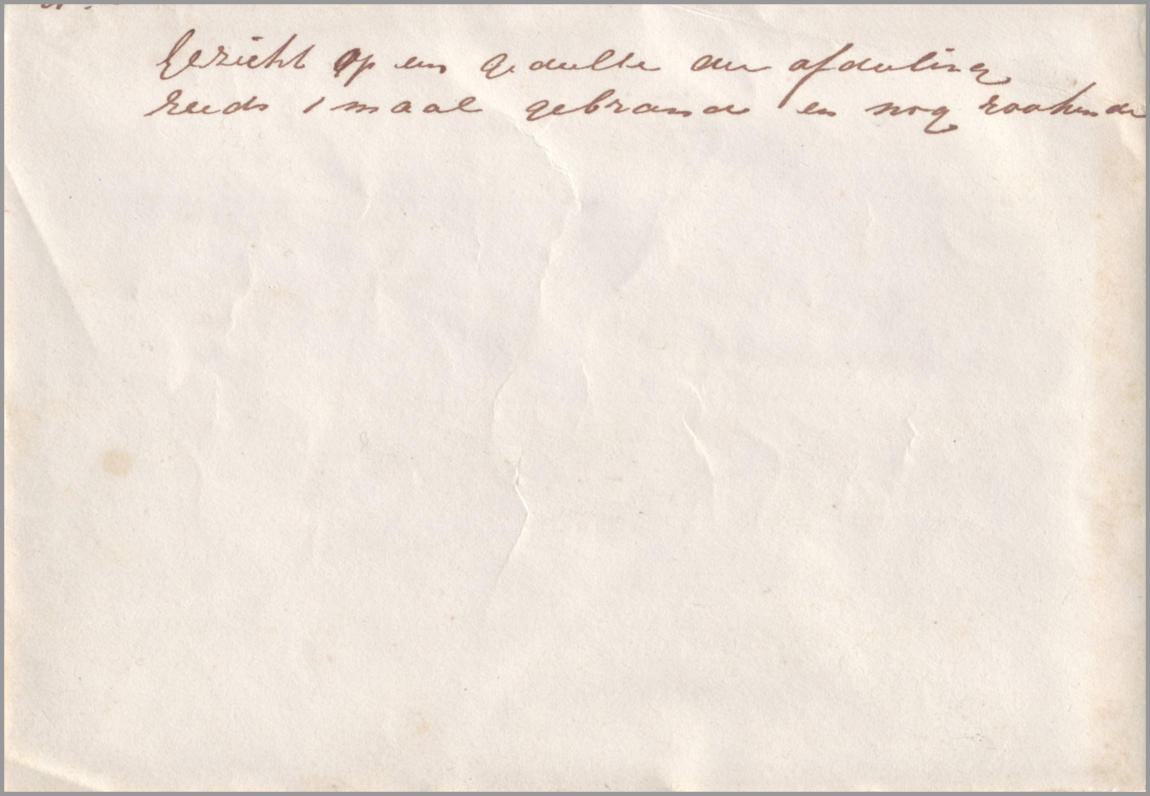 Gezicht op een gedeelte der afdeling
reeds 1 maal gebrand en nog rookende